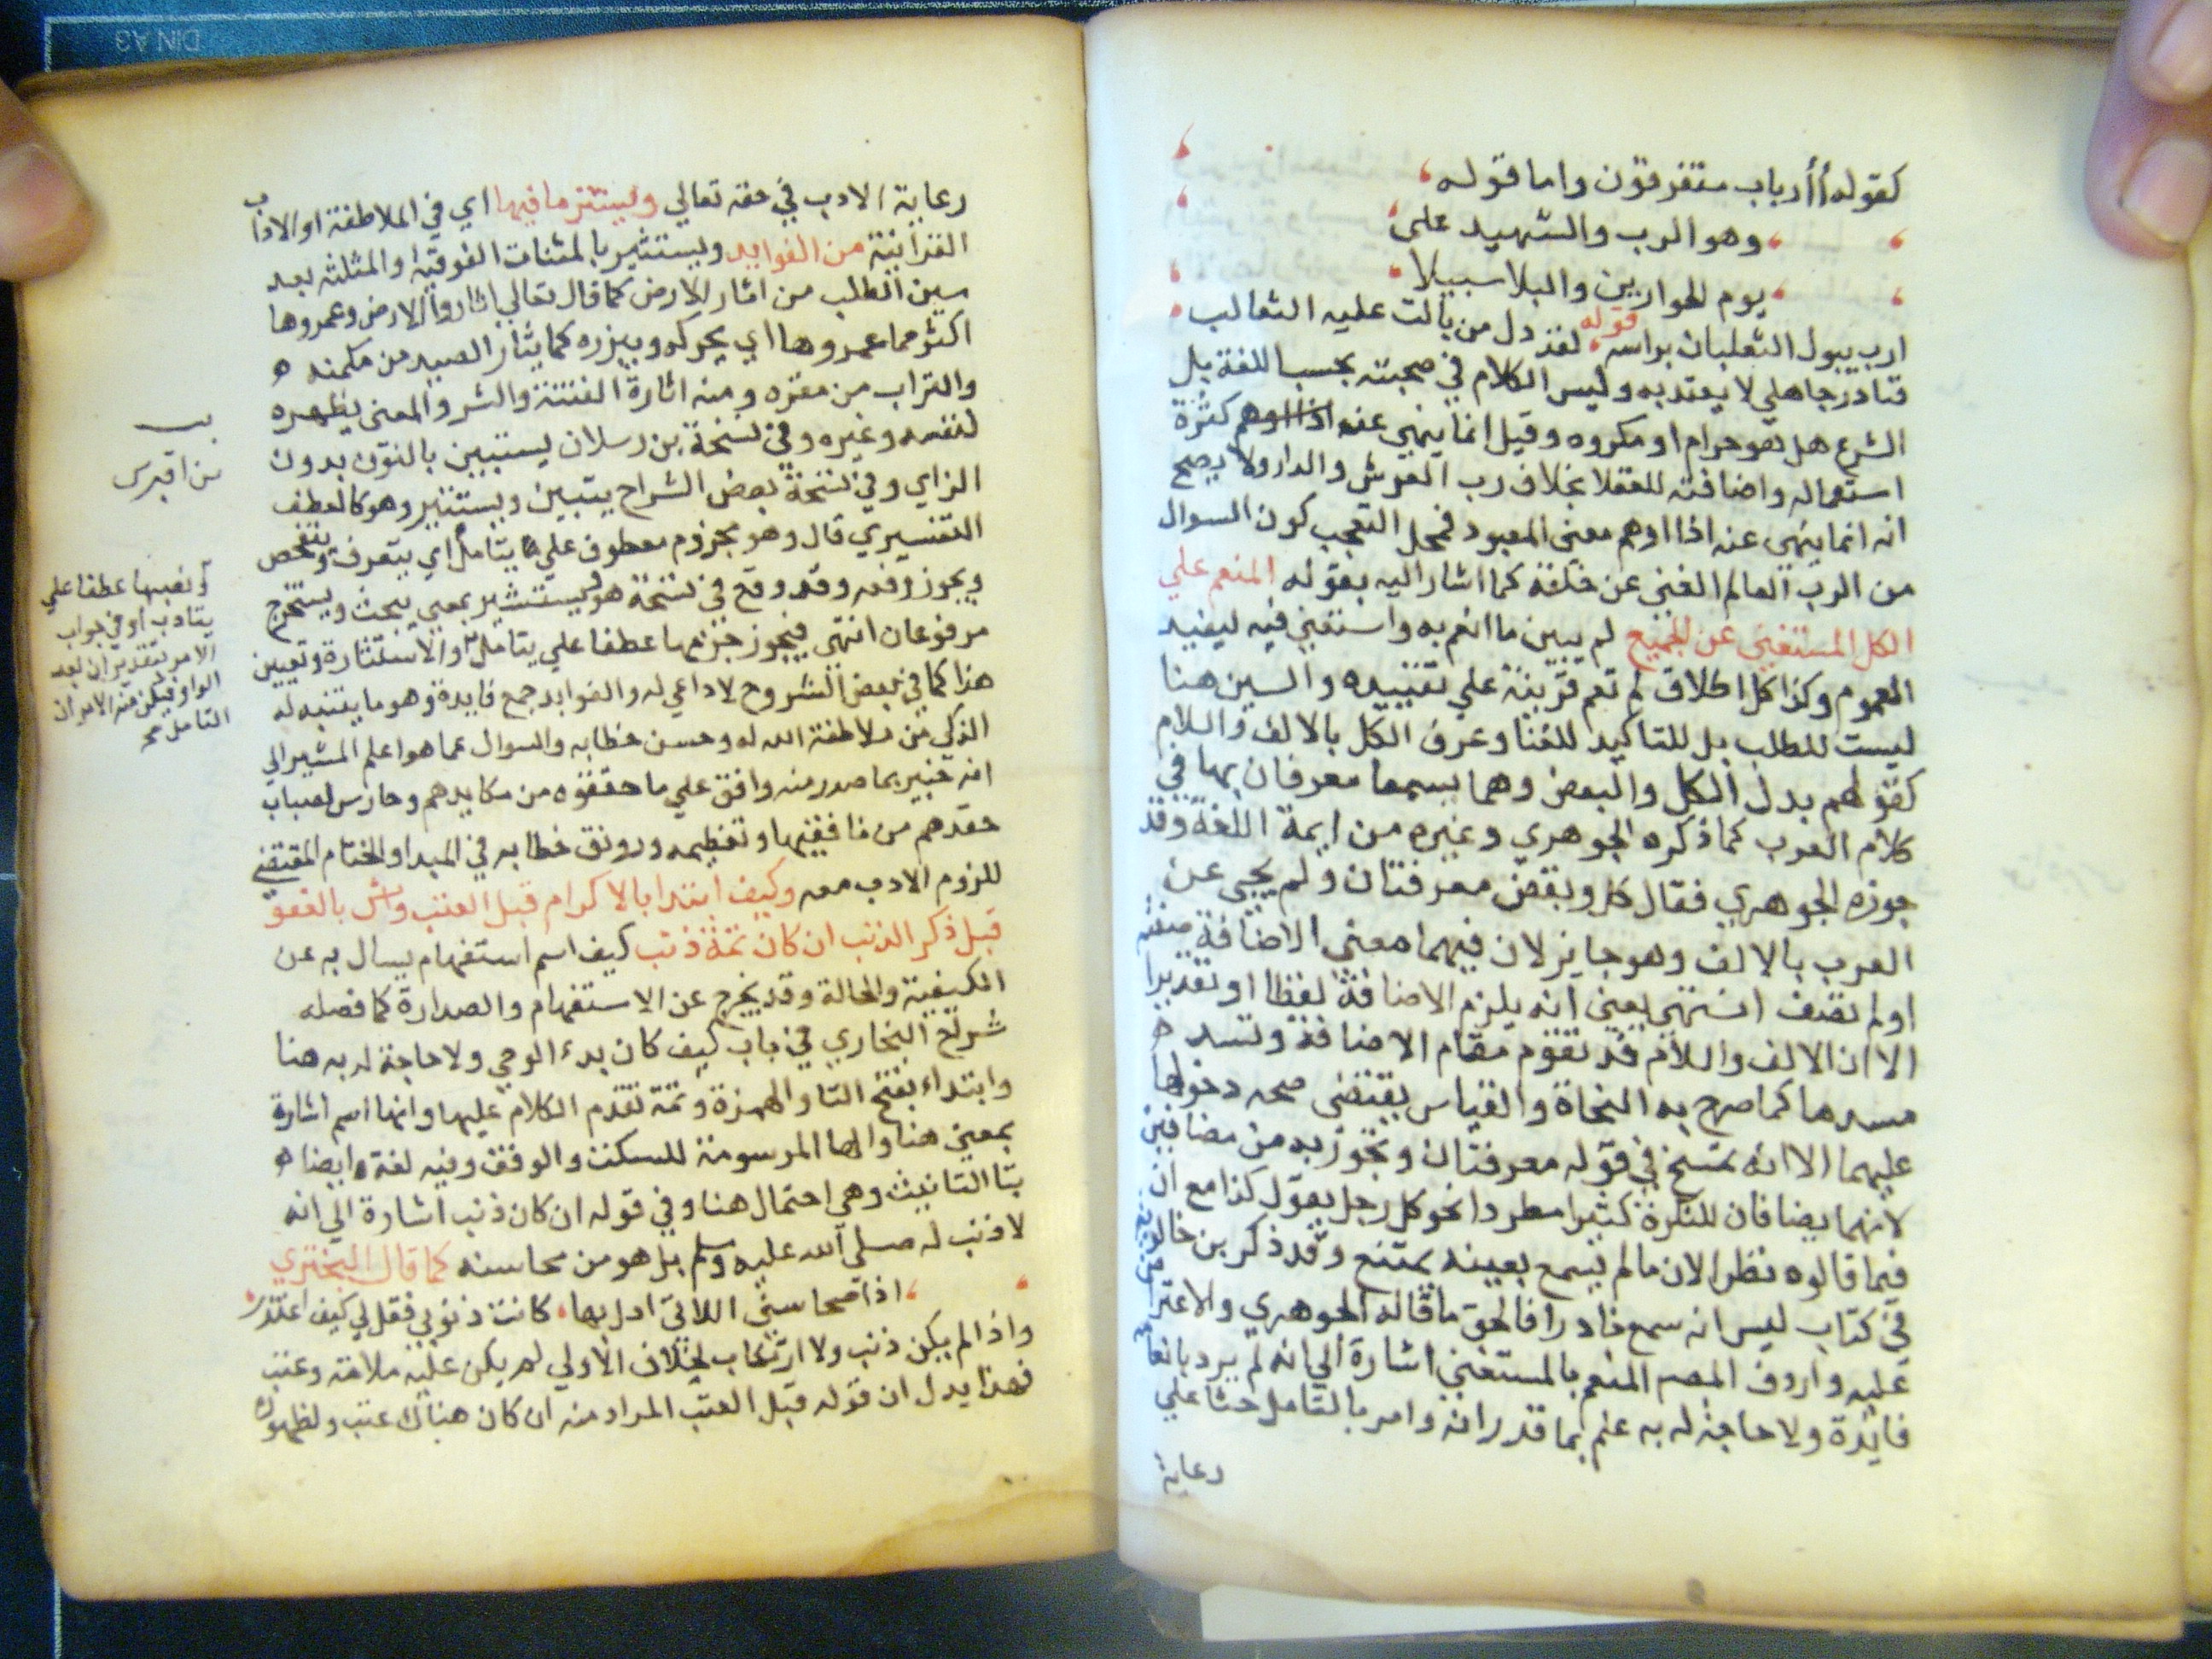 كقوله أأرباب متفرقون واما قوله
وهو الرب والشهيد على
يوم الحوارين والبلا سبيلا
ارب يبول الثعلبان براسه قوله لقد دل من بالت عليه الثعالب
فنادر جاهلي لا يعتد به وليس الكلام في صحبته بحسب اللغة بل
الشرع هل هو حرام او مكروه وقيل انما ينهي عنه اذا اوهم كثرة
استعماله واضافته للعقلا بخلاف رب العرش والدار ولا يصح
انه انما ينهي عنه اذا اوهم معنى المعبود فمحل التعجب كون السوال
من الرب العالم الغني عن خلقه كما اشار اليه بقوله المنعم علي
الكل المستغني عن الجميع لم يبين ما انعم به واستغني فيه ليفيد
العموم وكذا كل اطلاق لم تقم قرينة علي تقييده والسين هنا
ليست للطلب بل للتاكيد للغنا وعرف الكل بالالف واللام
كقولهم بدل الكل والبعض وهما يسمعا معرفان بها في
كلام العرب كما ذكره الجوهري وغيره من ايمة اللغة وقد
جوزه الجوهري فقال كل وبعض معرفتان ولم يجي عن
العرب بالالف وهو جايز لان فيهما معنى الاضافة
اولم تضف انتهي يعني انه يلزم الاضافة لفظا او تقديرا
الا ان الالف واللام قد تقوم مقام الاضافة وتسد
مسدها كما صرح به النحاة والقياس يقتضى صحه دخولها
عليهما الا انه تسمح في قوله معرفتان وتجوز به من مضافين
لانهما يضافان للنكرة كثيرا مطردا نحو كل رجل يقول كذا مع ان
فيما قالوه نظرا لان مالم يسمع بعينه يمتنع وقد ذكر بن خالويه
في كتاب ليس انه سمع نادرا فالحق ما قاله الجوهري والاعتراض
عليه واردف المصم المنعم بالمستغني اشارة الي انه لم يرد بانعامه
فايدة ولا حاجة له به علم بما قدر انه وامر بالتامل حثا علي
رعاية
رعاية الادب في حقه تعالي ويستثر ما فيها اي في الملاطفة او الاداب
القرانية من الفوايد ويستثير بالمثنات الفوقية والمثلثه بعد
سين الطلب من اثار الارض كما قال تعالي اثاروا الارض وعمروها
اكثر مما عمروها اي يحركه ويبرزه كما يثار الصيد من مكمنه
والتراب من مقره ومنه اثارة الفتنة والشر والمعنى يظهره
لنفسه وغيره وفي نسخة بن رسلان يستبين بالنون بدون
الزاي وفي نسخة بعض الشراح يتبين ويستنير وهو كالعطف
التفسيري قال وهو مجزوم معطوف علي يتامل اي يتعرف ويتفحص
ويجوز رفعه وقد وقع في نسخة هو يستثير بمعني يبحث ويستخرج
مرفوعان انتهي فيجوز جزمها عطفا علي يتامل والاستثارة وتعيين
هذا كما في بعض الشروح لا داعي له والفوايد جمع فايدة وهو ما يتنبه له
الذكي من ملاطفة الله له وحسن خطابه والسوال عما هو اعلم المشير الي
انه خبير بما صدر منه وافق علي ما حققوه من مكايدهم وحارس لعباب
حقدهم من منافقيها وتعظيمه ورونق خطابه في المبدا والختام المقتضي
للزوم الادب معه وكيف ابتدا بالاكرام قبل العتب وانس بالعفو
قبل ذكر الذنب ان كان ثمة ذنب كيف اسم استفهام يسال به عن
الكيفية والحالة وقد يخرج عن الاستفهام والصدارة كما فصله
شراح البخاري في باب كيف كان بدء الوحي ولا حاجة له به هنا
وابتداء بفتح التا والهمزة وثمة تقدم الكلام عليها وانها اسم اشارة
بمعني هنا والها المرسومة للسكت والوقف وفيه لغة ايضا
بتا التانيث وهي احتمال هنا وفي قوله ان كان ذنب اشارة الي انه
لا ذنب له صلي الله عليه وسلم بل هو من محاسنه كما قال البحتري
اذا محاسني اللاتي ادل بها كانت ذنوبي فقل لي كيف اعتذر
واذا لم يكن ذنب ولا ارتكاب لخلاف الاولي لم يكن عليه ملامة وعتب
فهذا يدل ان قوله قبل العتب المراد منه ان كان هناك عتب ولظهوره
او نصبها عطفا علي
يتادب او في جواب
الامر بتقدير ان بعد
الواو
التامل صح